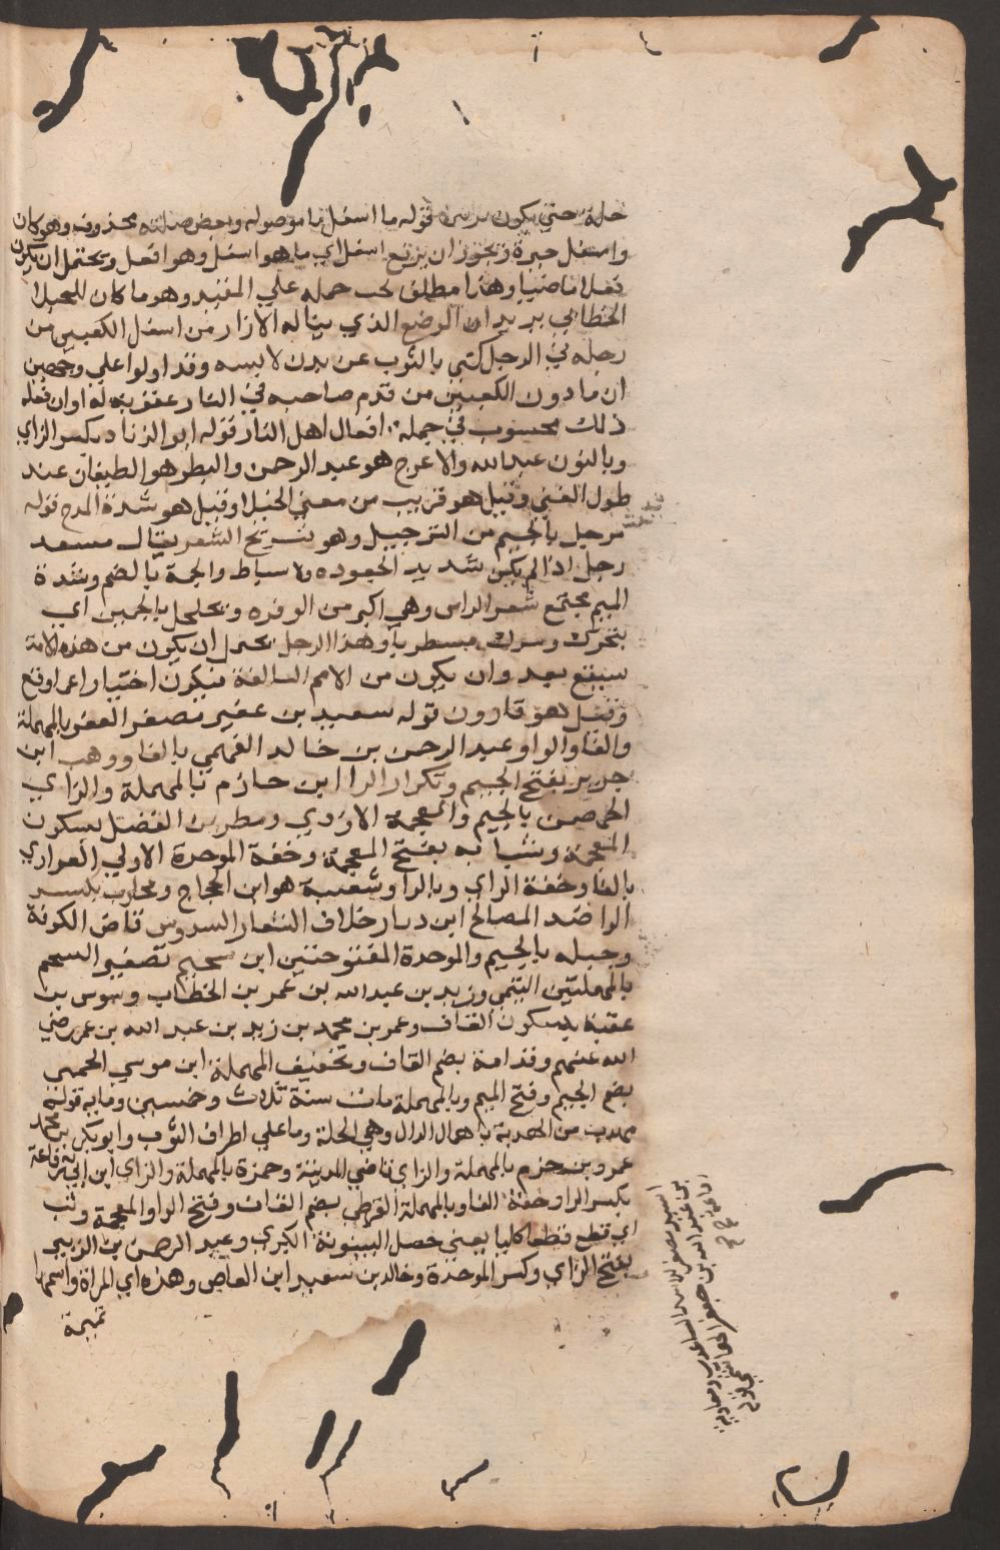 حلة حتى يكون قوله ما اسفل ما موصولة وبعض صلته محذوفه وهو كان
واسفل خبره ويجوز ان يرتفع اسفل اي ما هو اسفل وهو افعل ويحتمل ان يكون
فعلا ماضيا وهذا مطلق يجب حمله على المقيد وهو ما كان للخيلا
الخطابي يريد ان الموضع الذي يناله الازار من اسفل الكعبين من
رجله في الرجل كنى بالثوب عن بدن لابسه وقد اولوا على وجهين
ان ما دون الكعبين من قدم صاحبه في النار عقوبة له او ان فعله
ذلك محسوب في جملة افعال اهل النار قوله ابو الزناد بكسر الزاي
وبالنون عبد الله والاعرج هو عبد الرحمن والبطر هو الطغيان عند
طول الغنى وقيل هو قريب من معنى الخيلا وقيل هو شدة المرح قوله
مرجل بالجيم من الترجيل وهو تسريح الشعر يقال شعر
رجل اذا لم يكن شديد الجعوده ولا سباط والجمة بالضم وشدة
الميم مجتمع شعر الراس وهي اكبر من الوفره ويتجلجل بالجيمين اي
يتحرك وينزل مضطربا وهذا الرجل يحتمل ان يكون من هذه الامة
سيقع بعد وان يكون من الامم السالفة فيكون اخبارا عما وقع
وقيل هو قارون قوله سعيد بن عفير مصغر العفر بالمهملة
والفا والواو عبد الرحمن بن خالد الفهمي بالفا ووهب ابن
جرير بفتح الجيم وتكرار الرا ابن حازم بالمهملة والزاي
الجهضمي بالجيم والمعجمة الازدي ومطر بن الفضل بسكون
المعجمة وشبابه بفتح المعجمة وخفة الموحدة الاولى الفزاري
بالفا وخفة الزاي وبالرا وشعبة هو ابن الحجاج ومحارب بكسر
الرا ضد المصالح ابن دثار خلاف الشعار السدوسي قاضي الكوفة
وجبله بالجيم والموحدة المفتوحتين ابن سحيم تصغير السحم
بالمهملتين التيمي وزيد بن عبد الله بن عمر بن الخطاب وموسى بن
عقبة بسكون القاف وعمر بن محمد بن زيد بن عبد الله بن عمر رضي
الله عنهم وقدامة بضم القاف وتخفيف المهملة ابن موسى الجمحي
بضم الجيم وفتح الميم وبالمهملة مات سنة ثلاث وخمسين ومايه قوله
مهدب من الهدبة باهمال الدال وهي الخلة وما على اطراف الثوب وابو بكر بن محمد
عمرو بن حزم بالمهملة والزاي قاضي المدينة وحمزة بالمهملة والزاي ابن ابي رفاعة
بكسر الرا وخفة الفا وبالمهملة القرظي بضم القاف وفتح الرا والمعجمة وبت
اي قطع قطعا كليا يعني حصل البينونة الكبرى وعبد الرحمن بن الزبير
بفتح الزاي وكسر الموحدة وخالد بن سعيد ابن العاص وهذه اي المراة واسمها
تميمة
اسيد مصغر الاسد الساعدي ومعاوية
بن عبد الله بن جعفر